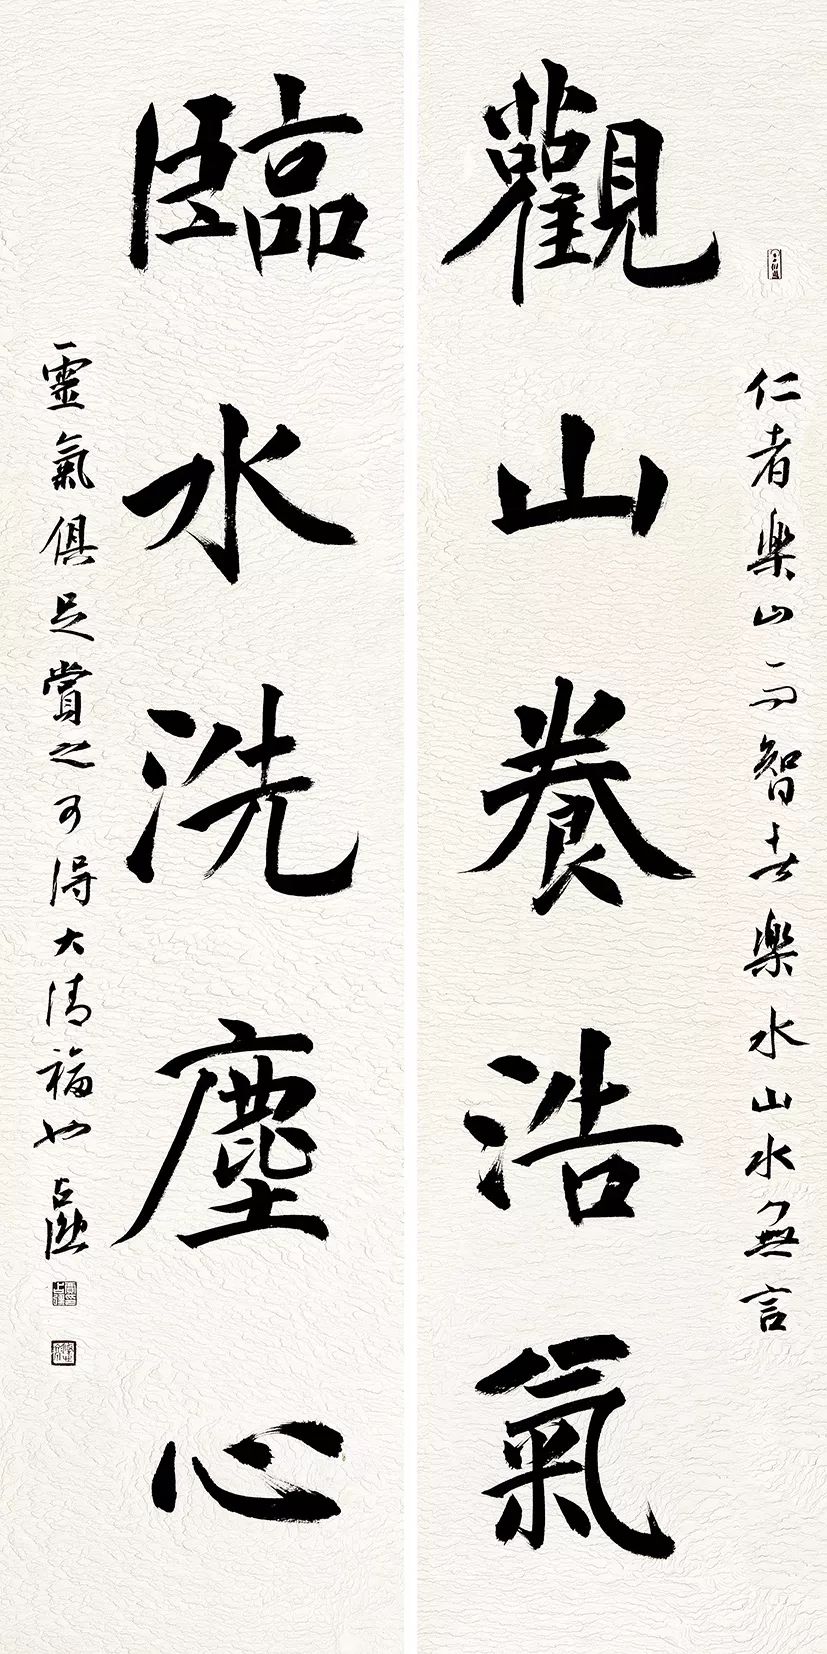 仁者樂山而智者樂水山水無言
觀山養浩氣
臨水洗塵心
靈氣俱足賞之可得大清福也